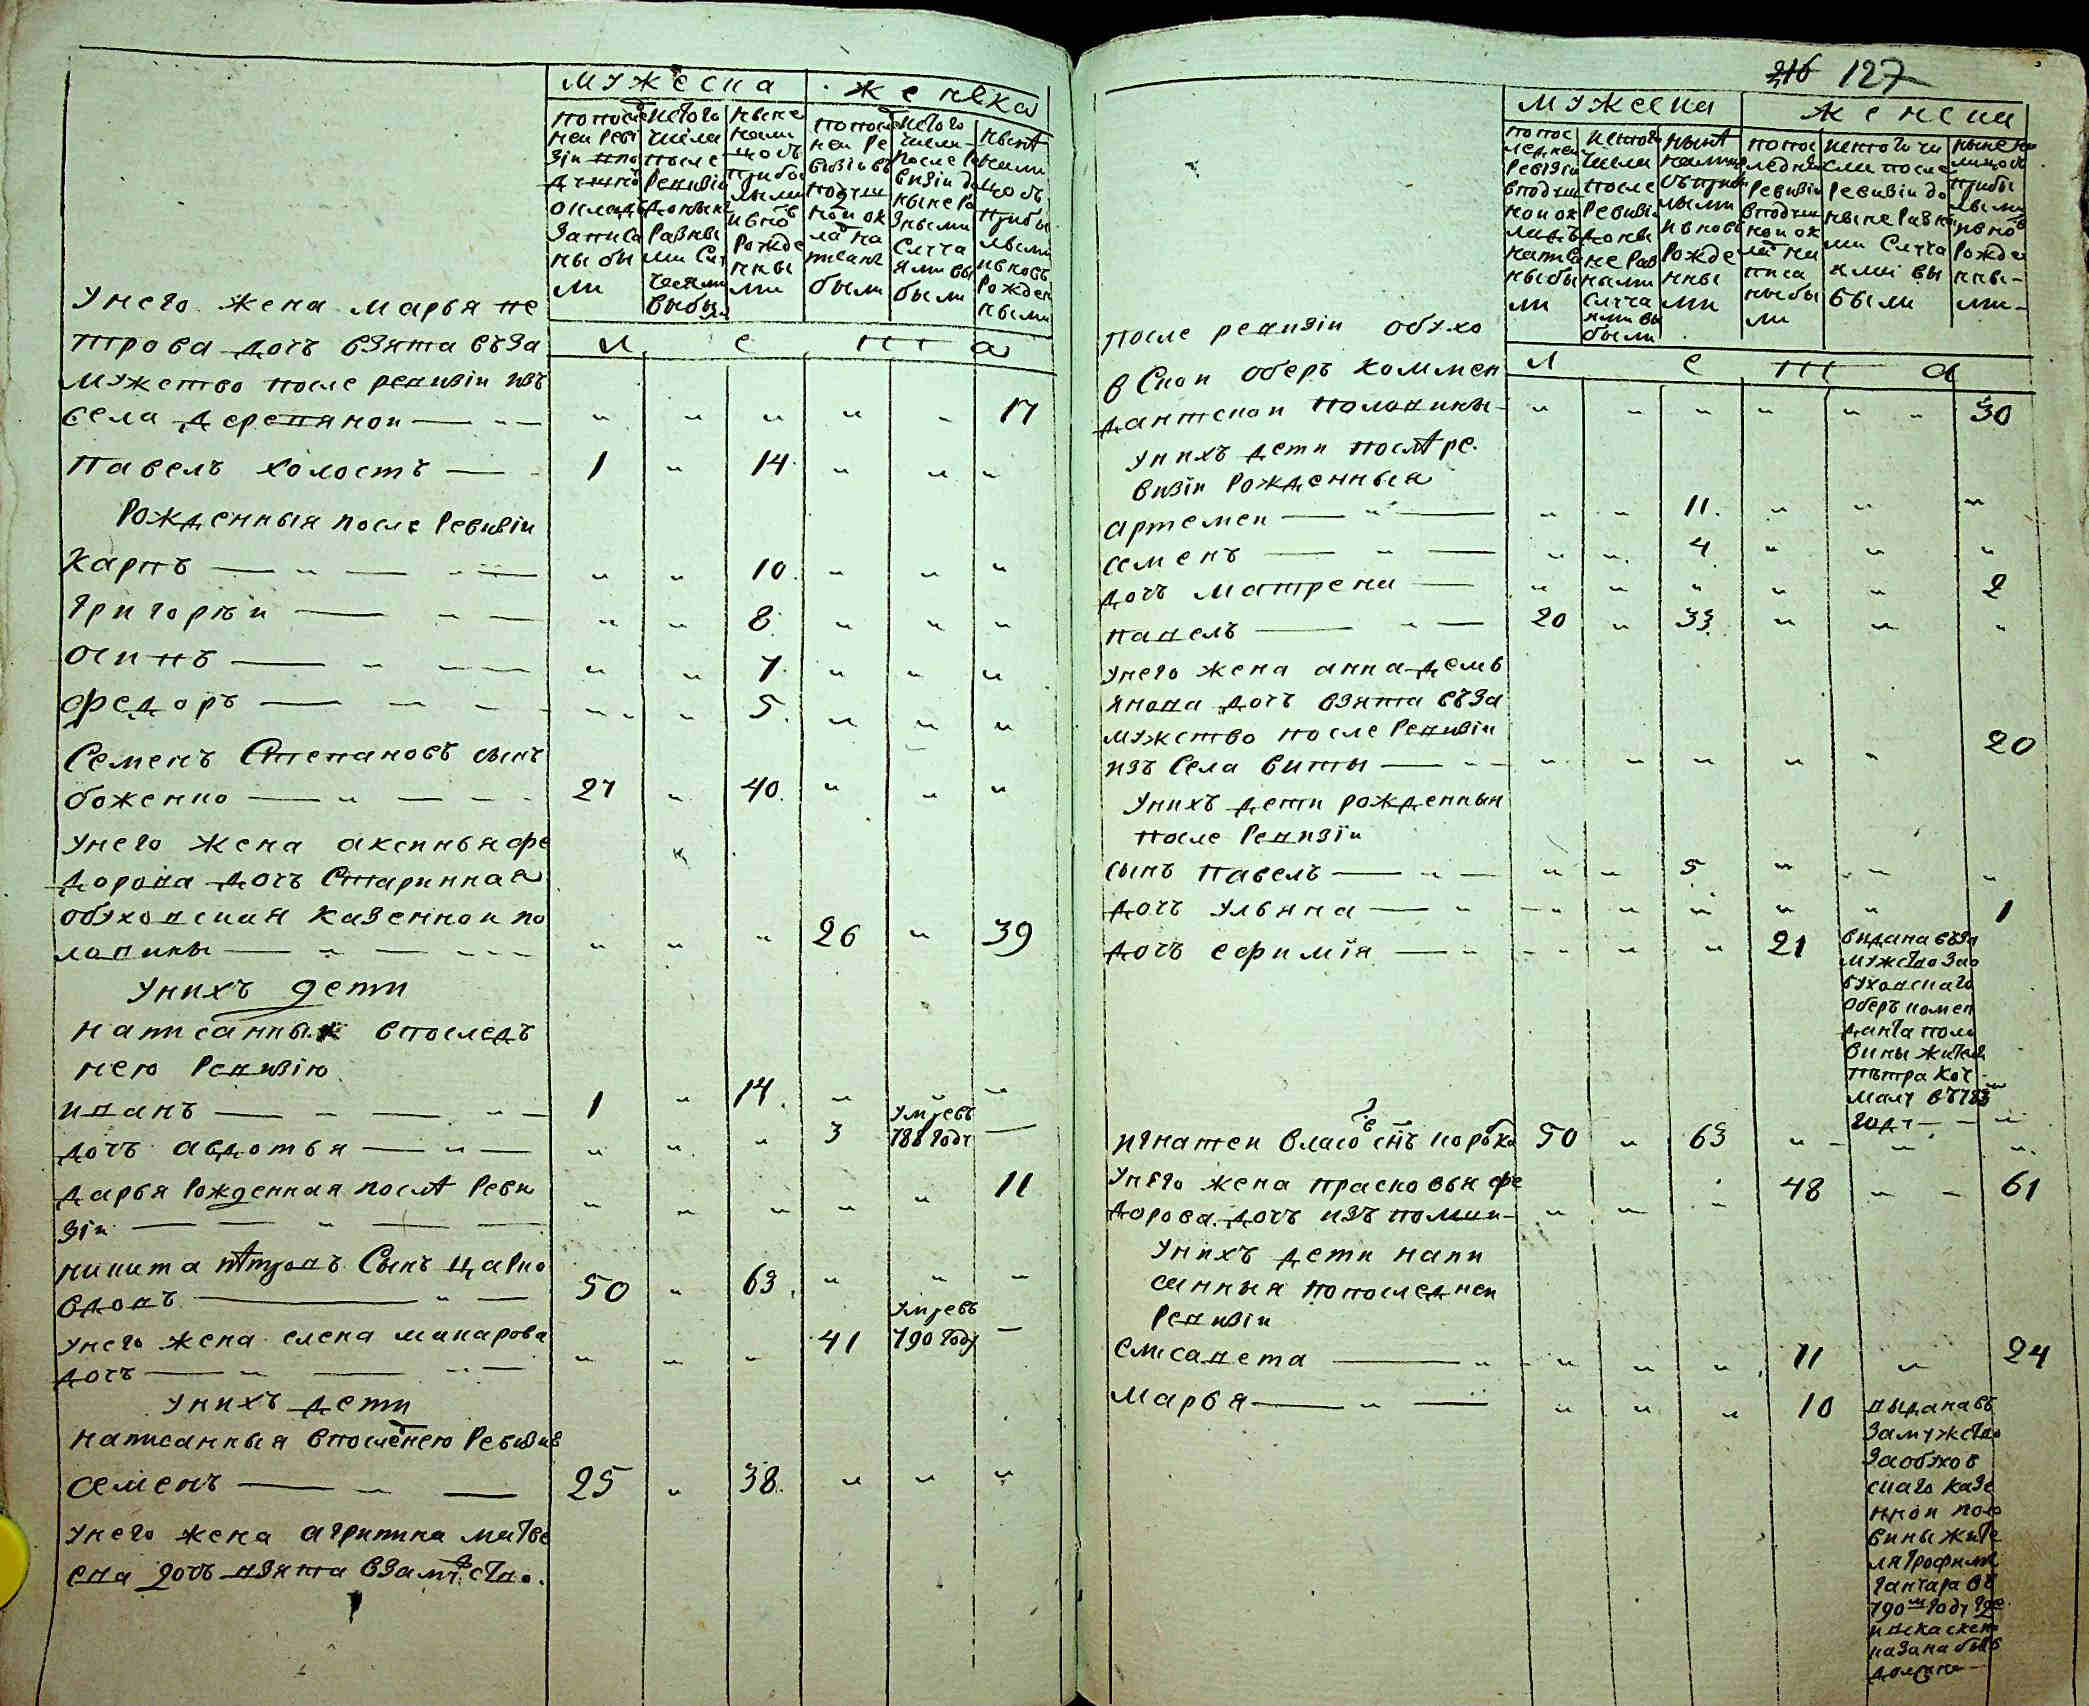 мужеска женска
попоследней ревизіи вподушной окладъ записаны были
исного числа после ревизіи доныне разными случаями выбыли
ныне налицо съ прибылыми ивновь рожденными
попоследней ревизіи въ подушной окладъ написаны были
исного числа после ревизіи доныне разными случаями выбыли
нынѣ налицо съ прибылыми ивновь рожденными
лета
Унего жена марья пе
трова дочь взята въза
мужство после ревизіи изъ
села деревяной — 17
Павелъ холостъ — 1 " 14
Рожденныя после ревизіи
Карпъ — 10
Григорѣй — 8
Осипъ — 7
Федоръ — 5
Семенъ Степановъ сынъ
боженко — 27 " 40
Унего жена аксинья фе
дорова дочь Старинная
обуховская казенной по
ловины — 26 " 39
Унихъ дети
написанныя впоследъ
нею ревизію
иванъ — 1 " 14
дочь авдотья — 3 умре въ 788 годе
дарья рожденная послѣ реви
зіи — 11
никита пѣтровъ Сынъ царко
вдовъ — 50 " 63
Унего жена елена макарова
дочь — 41 умре въ 790 году
Унихъ дети
написанныя впоследнею Ревизию
семенъ — 25 " 38
Унего жена агрипина матве
ева дочь взята взамуство.
216 127
мужеска женска
попоследней ревизіи вподушной окладъ написаны были
исного числа после ревизіи доныне разными случаями выбыли
нынѣ налицо съ прибылыми ивновь рожденными
попоследней ревизіи вподушной окладъ написаны были
исного числа после ревизіи доныне разными случаями выбыли
ныне налицо съ прибылыми ивновь рожденными
лета
после ревизіи обухо
вской оберъ коммен
дантской половины — 30
унихъ дети послѣ ре
визіи рожденныя
артемей — 11
семенъ — 4
дочь матрена — 2
павелъ — 20 " 33
унего жена анна демь
янова дочь взята въза
мужство после ревизіи
изъ села виты — 20
Унихъ дети рожденныя
после ревизіи
сынъ павелъ — 5
дочь ульяна — 1
дочь ефимія — 21
видана въза
мужство за о
буховскаго
оберъ комен
данта поло
вины жителя
пѣтра
въ 783м
годе
игнатей власовъ снъ коробко 50 " 63
Унего жена прасковья фе 48 — 61
дорова дочь изъ
Унихъ дети напи
санныя попоследней
ревизіи
елисавета — 11 " 24
марья — 10
выдана въ
замужство
за обухов
скаго казе
нной поло
вины жите
ля трофима
ганчара въ
790м году где
и всказке по
казана быть
должна